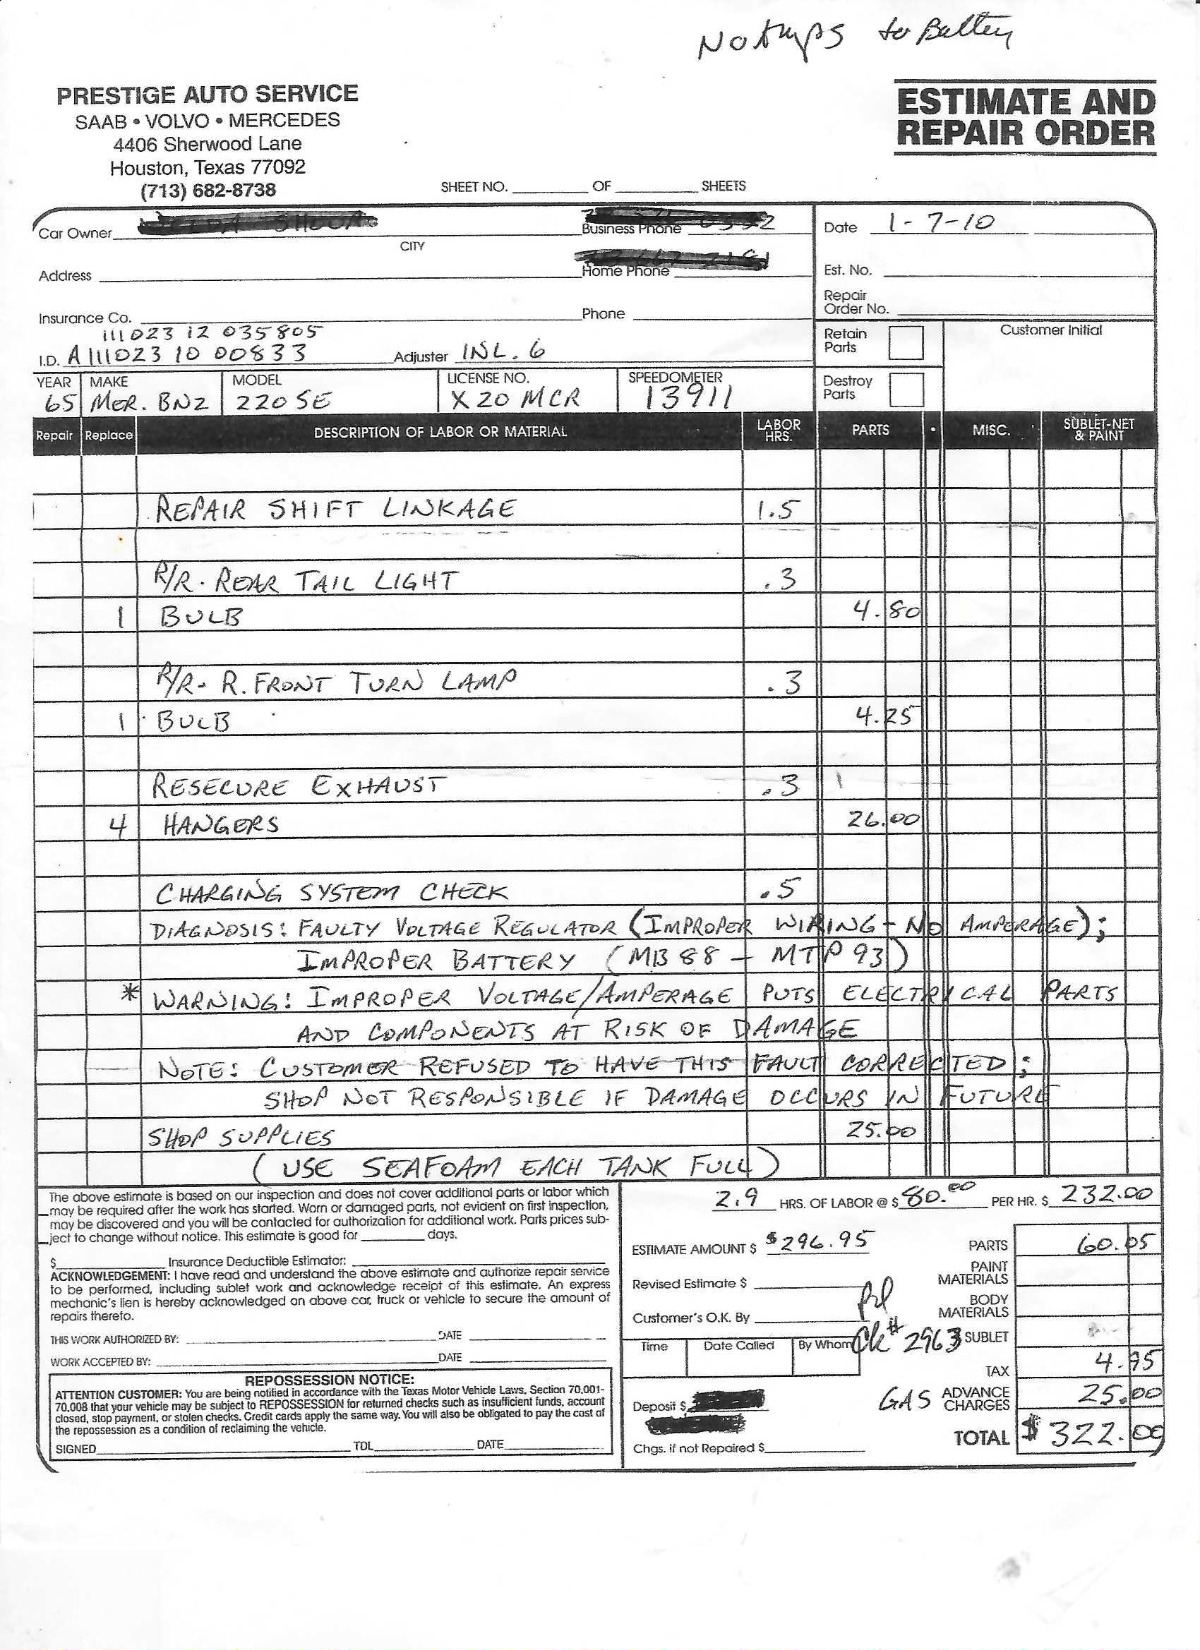 No Amps to Battery
PRESTIGE AUTO SERVICE
SAAB • VOLVO • MERCEDES
4406 Sherwood Lane
Houston, Texas 77092
(713) 682-8738
ESTIMATE AND
REPAIR ORDER
SHEET NO. OF SHEETS
Car Owner Business Phone
CITY
Date 1-7-10
Address Home Phone
Est. No.
Insurance Co. Phone
Repair
Order No.
111023 12 035805
I.D. A 111023 10 00833 Adjuster INL. 6
Retain
Parts
Customer Initial
Destroy
Parts
YEAR MAKE MODEL LICENSE NO. SPEEDOMETER
65 MER. BNZ 220 SE X20 MCR 13911
Repair Replace DESCRIPTION OF LABOR OR MATERIAL LABOR HRS. PARTS • MISC. SUBLET-NET & PAINT
REPAIR SHIFT LINKAGE 1.5
R/R. REAR TAIL LIGHT .3
1 BULB 4.80
R/R- R. FRONT TURN LAMP .3
1 BULB 4.25
RESECURE EXHAUST .3
4 HANGERS 26.00
CHARGING SYSTEM CHECK .5
DIAGNOSIS: FAULTY VOLTAGE REGULATOR (IMPROPER WIRING - NO AMPERAGE);
IMPROPER BATTERY (MB 88 - MTP 93)
* WARNING: IMPROPER VOLTAGE/AMPERAGE PUTS ELECTRICAL PARTS
AND COMPONENTS AT RISK OF DAMAGE
NOTE: CUSTOMER REFUSED TO HAVE THIS FAULT CORRECTED;
SHOP NOT RESPONSIBLE IF DAMAGE OCCURS IN FUTURE
SHOP SUPPLIES 25.00
(USE SEAFOAM EACH TANK FULL)
The above estimate is based on our inspection and does not cover additional parts or labor which
may be required after the work has started. Worn or damaged parts, not evident on first inspection,
may be discovered and you will be contacted for authorization for additional work. Parts prices sub-
ject to change without notice. This estimate is good for days.
$ Insurance Deductible Estimator:
ACKNOWLEDGEMENT: I have read and understand the above estimate and authorize repair service
to be performed, including sublet work and acknowledge receipt of this estimate. An express
mechanic's lien is hereby acknowledged on above car, truck or vehicle to secure the amount of
repairs thereto.
THIS WORK AUTHORIZED BY: DATE
WORK ACCEPTED BY: DATE
REPOSSESSION NOTICE:
ATTENTION CUSTOMER: You are being notified in accordance with the Texas Motor Vehicle Laws, Section 70.001-
70.008 that your vehicle may be subject to REPOSSESSION for returned checks such as insufficient funds, account
closed, stop payment, or stolen checks. Credit cards apply the same way. You will also be obligated to pay the cost of
the repossession as a condition of reclaiming the vehicle.
SIGNED TDL DATE
2.9 HRS. OF LABOR @ $ 80.00 PER HR. $ 232.00
ESTIMATE AMOUNT $ $296.95
PARTS 60.05
Revised Estimate $
PAINT
MATERIALS
Customer's O.K. By
Pd
BODY
MATERIALS
Time Date Called By Whom
Ck# 2963
SUBLET
TAX 4.95
Deposit $
GAS ADVANCE
CHARGES 25.00
Chgs. if not Repaired $
TOTAL $322.00